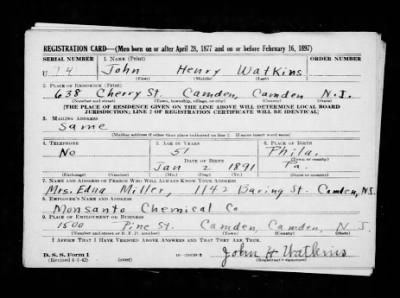 REGISTRATION CARD—(Men born on or after April 28, 1877 and on or before February 16, 1897)
SERIAL NUMBER 1. NAME (Print) ORDER NUMBER
U John Henry Watkins
(First) (Middle) (Last)
2. PLACE OF RESIDENCE (Print)
638 Cherry St. Camden, Camden N.J.
(Number and street) (Town, township, village, or city) (County) (State)
[THE PLACE OF RESIDENCE GIVEN ON THE LINE ABOVE WILL DETERMINE LOCAL BOARD
JURISDICTION; LINE 2 OF REGISTRATION CERTIFICATE WILL BE IDENTICAL]
3. MAILING ADDRESS
Same
(Mailing address if other than place indicated on line 2. If same insert word same)
4. TELEPHONE 5. AGE IN YEARS 6. PLACE OF BIRTH
No 51 Phila.
DATE OF BIRTH (Town or county)
Jan 2 1891 Pa.
(Mo.) (Day) (Yr.) (State or country)
7. NAME AND ADDRESS OF PERSON WHO WILL ALWAYS KNOW YOUR ADDRESS
Mrs. Edna Miller, 1142 Baring St. Camden, N.J.
8. EMPLOYER'S NAME AND ADDRESS
Monsanto Chemical Co
9. PLACE OF EMPLOYMENT OR BUSINESS
1500 Pine St. Camden, Camden, N.J.
(Number and street or R. F. D. number) (Town) (County) (State)
I AFFIRM THAT I HAVE VERIFIED ABOVE ANSWERS AND THAT THEY ARE TRUE.
D. S. S. Form 1 John H Watkins
(Revised 4-1-42)